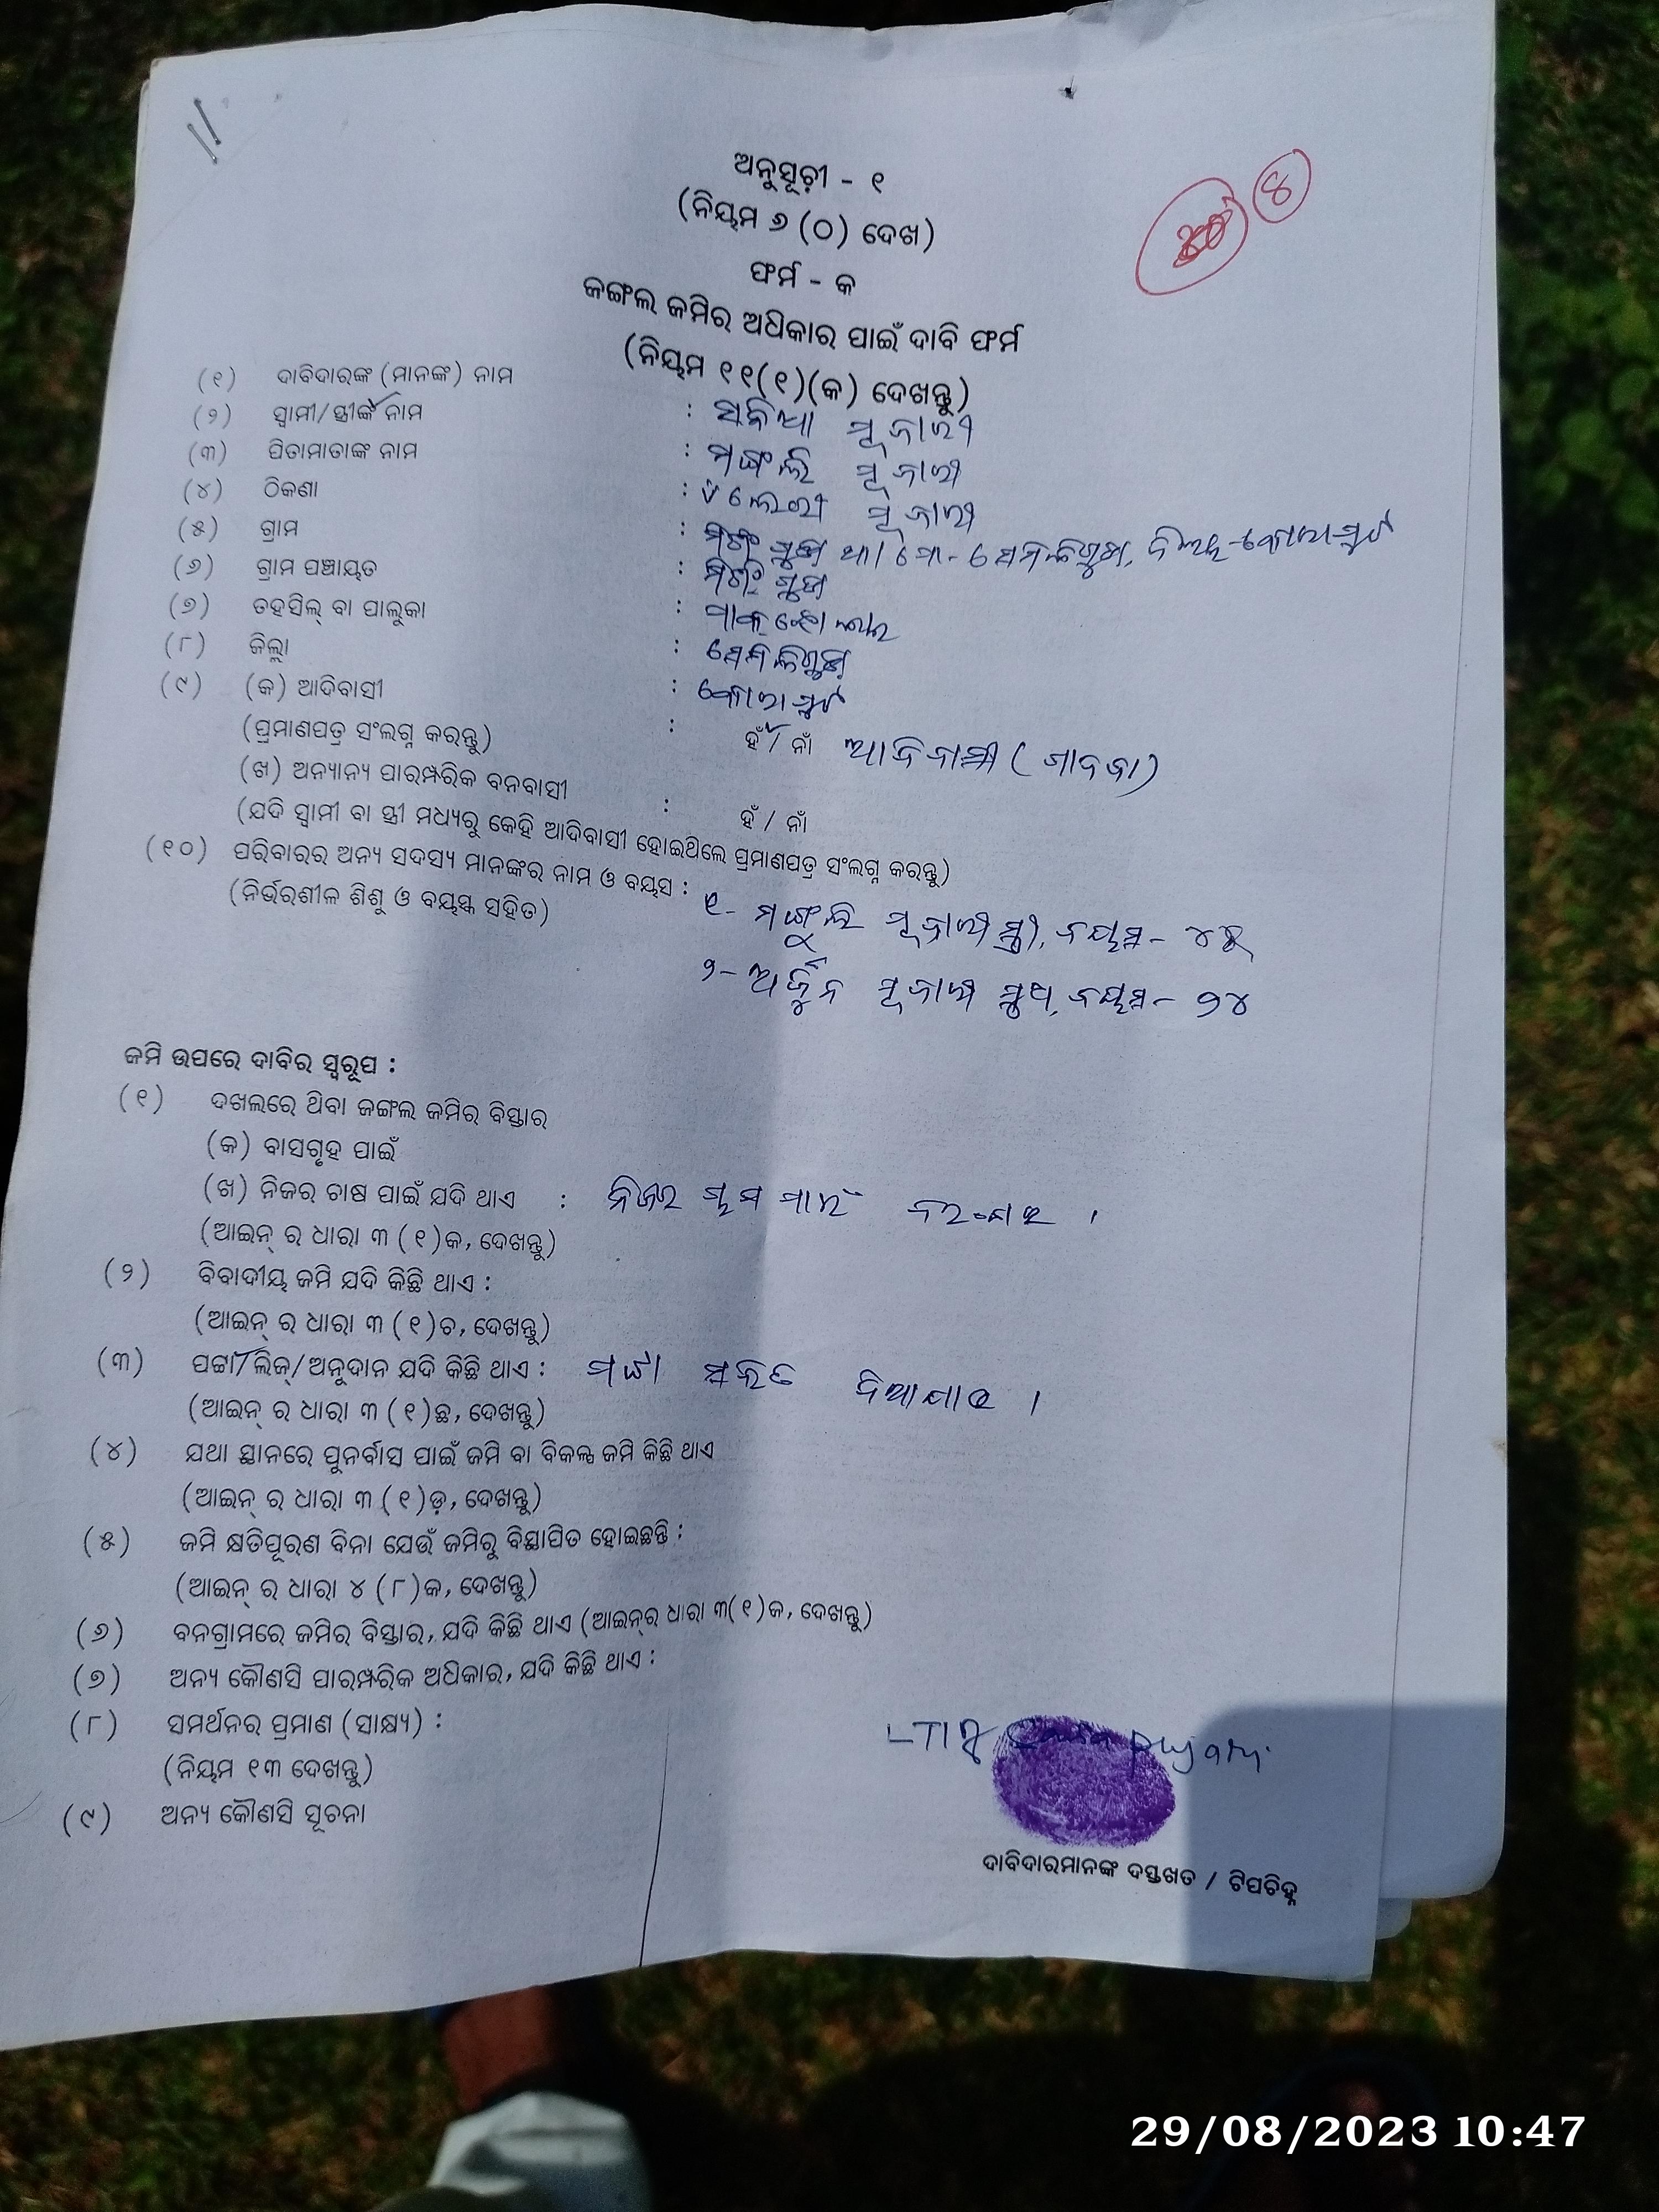 ଅନୁସୂଚୀ - ୧
୪
(ନିୟମ ୬ (୦) ଦେଖ)
ଫର୍ମ - କ
ଜଙ୍ଗଲ ଜମିର ଅଧିକାର ପାଇଁ ଦାବି ଫର୍ମ
(ନିୟମ ୧୧(୧)(କ) ଦେଖନ୍ତୁ)
(୧) ଦାବିଦାରଙ୍କ (ମାନଙ୍କ) ନାମ : ପୂଜାରୀ
(୨) ସ୍ୱାମୀ/ସ୍ତ୍ରୀଙ୍କ ନାମ : ମଙ୍ଗଲି ପୂଜାରୀ
(୩) ପିତାମାତାଙ୍କ ନାମ : ପୂଜାରୀ
(୪) ଠିକଣା : ସେମିଳିଗୁଡ଼ା, ଜିଲ୍ଲା-କୋରାପୁଟ
(୫) ଗ୍ରାମ :
(୬) ଗ୍ରାମ ପଞ୍ଚାୟତ :
(୭) ତହସିଲ୍ ବା ପାଲୁକା : ସେମିଳିଗୁଡ଼ା
(୮) ଜିଲ୍ଲା : କୋରାପୁଟ
(୯) (କ) ଆଦିବାସୀ : ହଁ / ନାଁ ଆଦିବାସୀ (ଗାଦବା)
(ପ୍ରମାଣପତ୍ର ସଂଲଗ୍ନ କରନ୍ତୁ)
(ଖ) ଅନ୍ୟାନ୍ୟ ପାରମ୍ପରିକ ବନବାସୀ : ହଁ / ନାଁ
(ଯଦି ସ୍ୱାମୀ ବା ସ୍ତ୍ରୀ ମଧ୍ୟରୁ କେହି ଆଦିବାସୀ ହୋଇଥିଲେ ପ୍ରମାଣପତ୍ର ସଂଲଗ୍ନ କରନ୍ତୁ)
(୧୦) ପରିବାରର ଅନ୍ୟ ସଦସ୍ୟ ମାନଙ୍କର ନାମ ଓ ବୟସ :
(ନିର୍ଭରଶୀଳ ଶିଶୁ ଓ ବୟସ୍କ ସହିତ)
୧- ମଙ୍ଗୁଲି ପୂଜାରୀ ସ୍ତ୍ରୀ, ବୟସ-
୨- ଅର୍ଜୁନ ପୂଜାରୀ ପୁଅ, ବୟସ- ୨୪
ଜମି ଉପରେ ଦାବିର ସ୍ୱରୂପ :
(୧) ଦଖଲରେ ଥିବା ଜଙ୍ଗଲ ଜମିର ବିସ୍ତାର
(କ) ବାସଗୃହ ପାଇଁ
(ଖ) ନିଜର ଚାଷ ପାଇଁ ଯଦି ଥାଏ : ନିଜର ଚାଷ ପାଇଁ
(ଆଇନ୍ ର ଧାରା ୩ (୧)କ, ଦେଖନ୍ତୁ)
(୨) ବିବାଦୀୟ ଜମି ଯଦି କିଛି ଥାଏ :
(ଆଇନ୍ ର ଧାରା ୩ (୧)ଚ, ଦେଖନ୍ତୁ)
(୩) ପଟ୍ଟା/ଲିଜ୍/ଅନୁଦାନ ଯଦି କିଛି ଥାଏ : ପଟ୍ଟା ଦିଆଯାଉ ।
(ଆଇନ୍ ର ଧାରା ୩ (୧)ଛ, ଦେଖନ୍ତୁ)
(୪) ଯଥା ସ୍ଥାନରେ ପୁନର୍ବାସ ପାଇଁ ଜମି ବା ବିକଳ୍ପ ଜମି କିଛି ଥାଏ
(ଆଇନ୍ ର ଧାରା ୩ (୧)ଡ଼, ଦେଖନ୍ତୁ)
(୫) ଜମି କ୍ଷତିପୂରଣ ବିନା ଯେଉଁ ଜମିରୁ ବିସ୍ଥାପିତ ହୋଇଛନ୍ତି :
(ଆଇନ୍ ର ଧାରା ୪ (୮)କ, ଦେଖନ୍ତୁ)
(୬) ବନଗ୍ରାମରେ ଜମିର ବିସ୍ତାର, ଯଦି କିଛି ଥାଏ (ଆଇନ୍‌ର ଧାରା ୩(୧)କ, ଦେଖନ୍ତୁ)
(୭) ଅନ୍ୟ କୌଣସି ପାରମ୍ପରିକ ଅଧିକାର, ଯଦି କିଛି ଥାଏ :
(୮) ସମର୍ଥନର ପ୍ରମାଣ (ସାକ୍ଷ୍ୟ) :
LTI pujari
(ନିୟମ ୧୩ ଦେଖନ୍ତୁ)
(୯) ଅନ୍ୟ କୌଣସି ସୂଚନା
ଦାବିଦାରମାନଙ୍କ ଦସ୍ତଖତ / ଟିପଚିହ୍ନ
29/08/2023 10:47